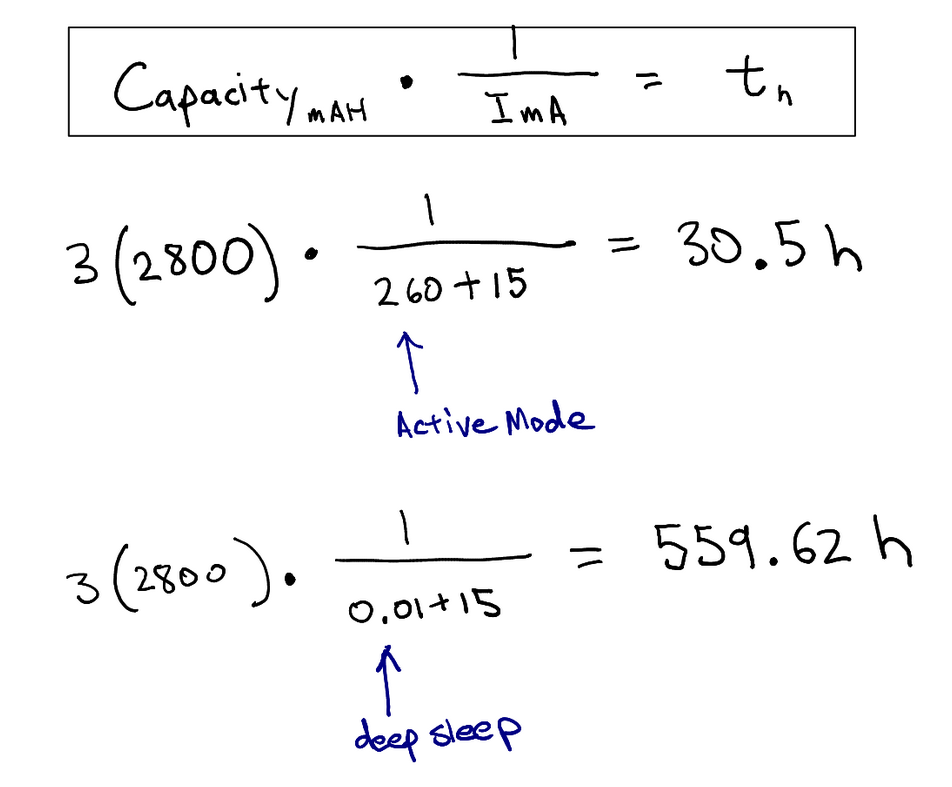 Capacity mAH • 1/(I mA) = t h
3(2800) • 1/(260+15) = 30.5 h
↑
Active Mode
3(2800) • 1/(0.01+15) = 559.62 h
↑
deep sleep